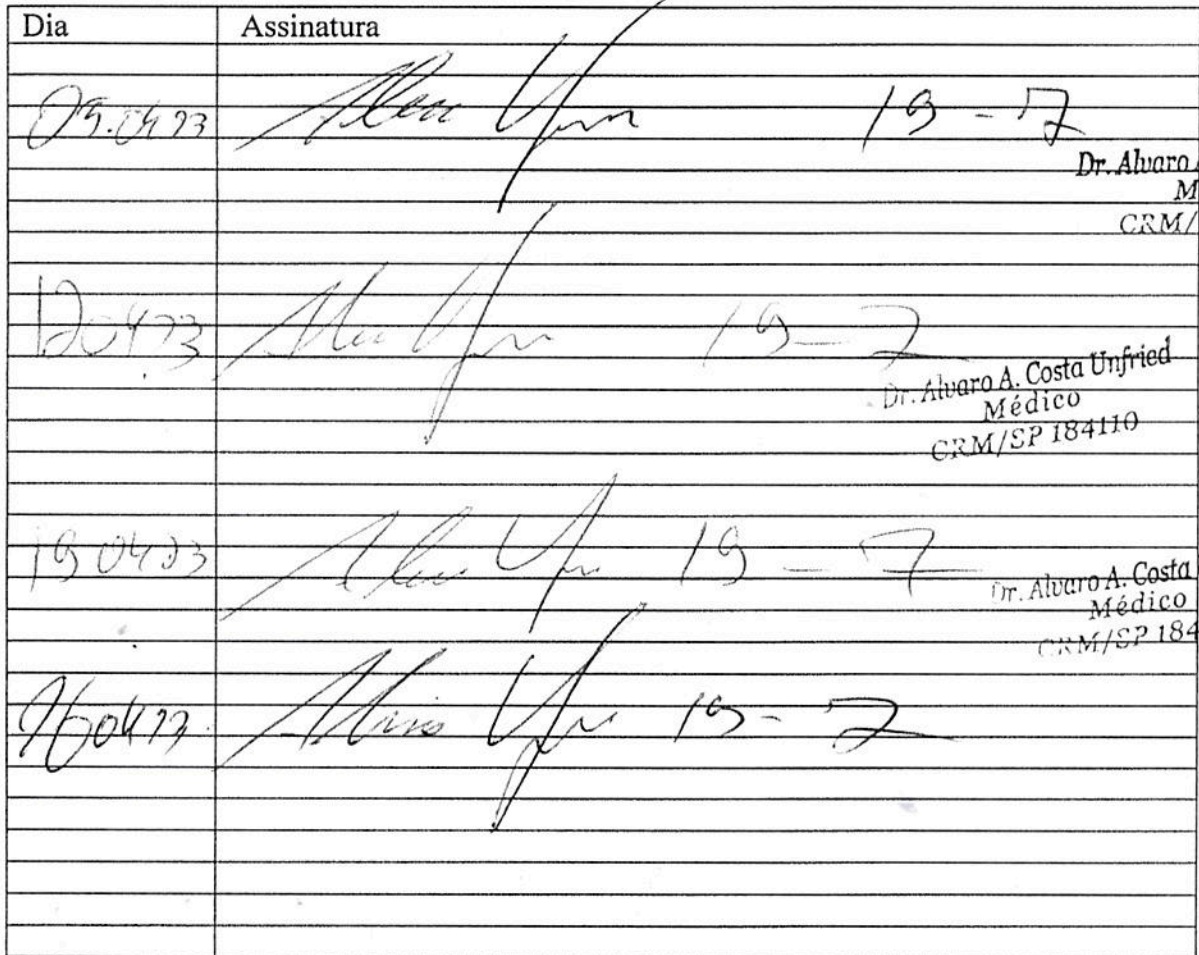 Dia Assinatura
05.04.23 19-7
Dr. Alvaro
M
CRM/
120423 19-7
Dr. Alvaro A. Costa Unfried
Médico
CRM/SP 184110
190423 19-7
Dr. Alvaro A. Costa
Médico
CRM/SP 184
260423 19-7